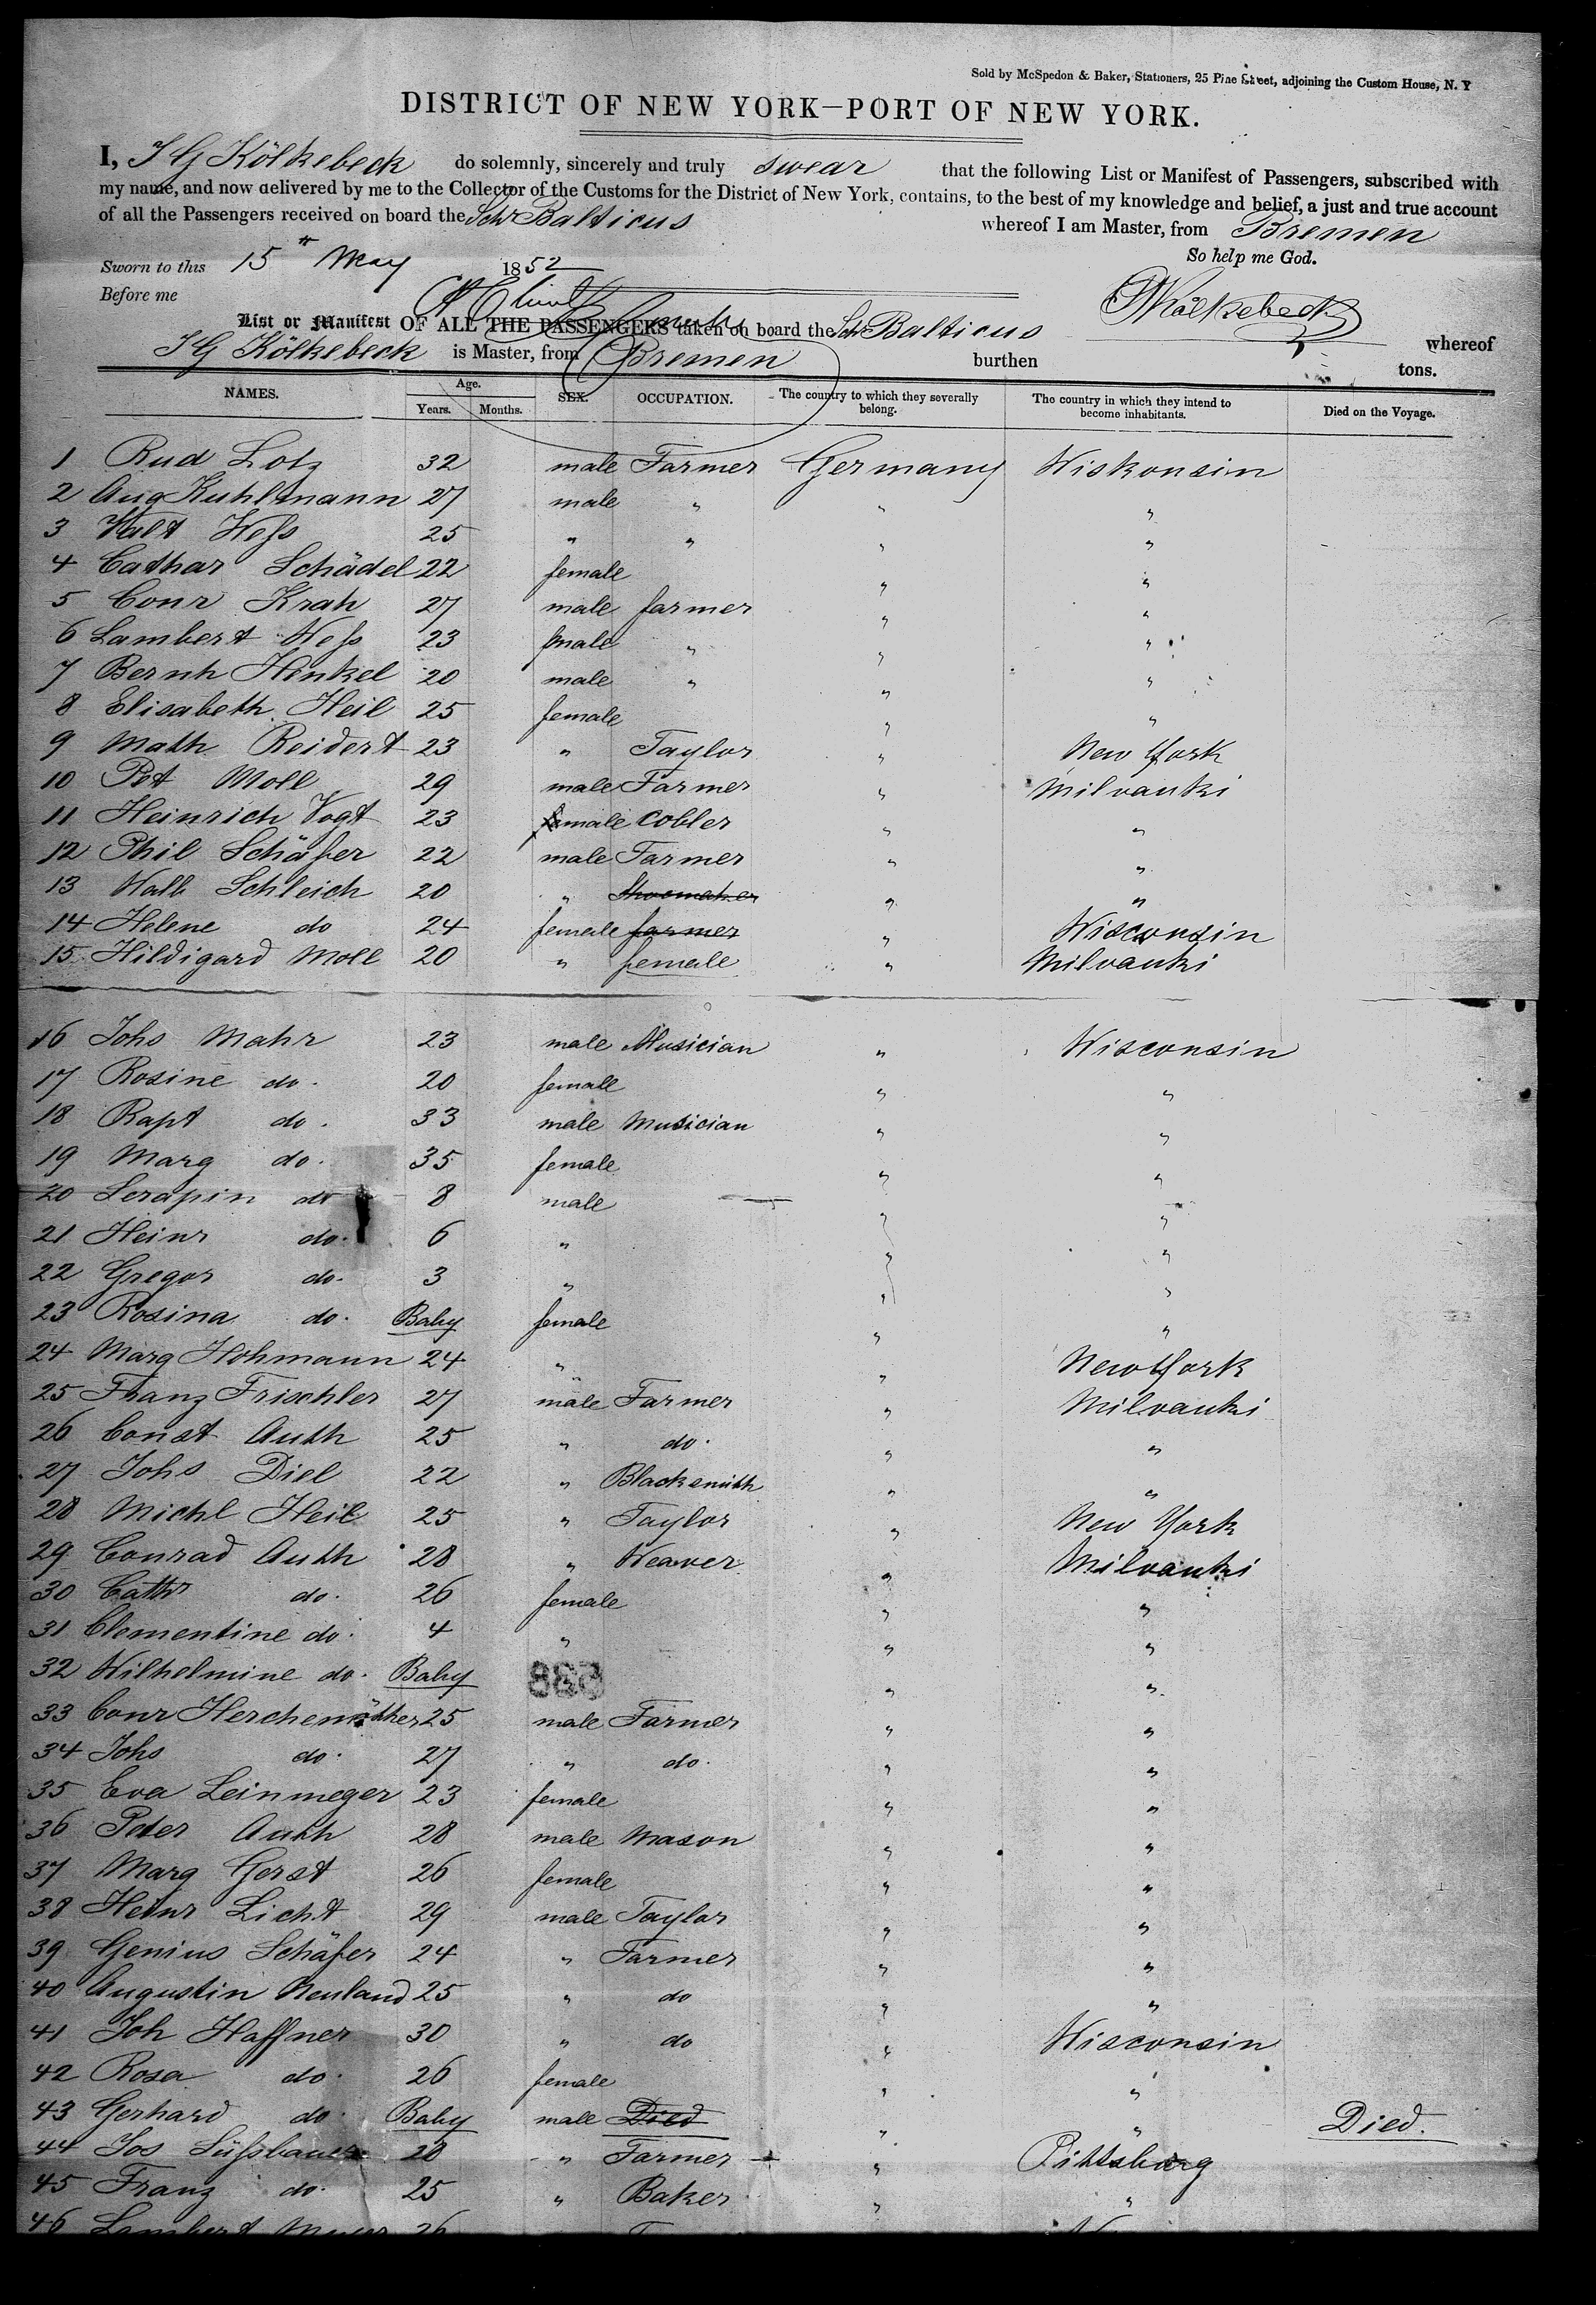 Sold by McSpedon & Baker, Stationers, 25 Pine Street, adjoining the Custom House, N. Y
DISTRICT OF NEW YORK—PORT OF NEW YORK.
I, J G Kölkebeck do solemnly, sincerely and truly swear that the following List or Manifest of Passengers, subscribed with
my name, and now delivered by me to the Collector of the Customs for the District of New York, contains, to the best of my knowledge and belief, a just and true account
of all the Passengers received on board the Schr Balticus whereof I am Master, from Bremen
So help me God.
Sworn to this 15th May 1852
Before me
Kölkebeck
List or Manifest OF ALL THE PASSENGERS taken on board the Schr Balticus whereof
J G Kölkebeck is Master, from Bremen burthen tons.
NAMES. Age. Years. Months. SEX. OCCUPATION. The country to which they severally belong. The country in which they intend to become inhabitants. Died on the Voyage.
1 Rud Lotz 32 male Farmer Germany Wiskonsin
2 Aug Kuhlmann 27 male " " "
3 Valt Heſs 25 " " " "
4 Cathar Schädel 22 female " "
5 Conr Krah 27 male farmer " "
6 Lambert Heſs 23 male " " "
7 Bernh Henkel 20 male " " "
8 Elisabeth Heil 25 female " "
9 Math Reidert 23 " Taylor " New York
10 Pet Moll 29 male Farmer " Milvauki
11 Heinrich Vogt 23 male Cobler " "
12 Phil Schäfer 22 male Farmer " "
13 Walb Schleich 20 " Shoemaker " "
14 Helene do 24 female farmer " Wisconsin
15 Hildigard Moll 20 " female " Milvauki
16 Johs Mahr 23 male Musician " Wisconsin
17 Rosine do. 20 female " "
18 Bapt do. 33 male Musician " "
19 Marg do. 35 female " "
20 Serapin do 8 male " "
21 Heinr do. 6 " " "
22 Gregor do. 3 " " "
23 Rosina do. Baby female " "
24 Marg Hohmann 24 " " New York
25 Franz Frischler 27 male Farmer " Milvauki
26 Const Auth 25 " do. " "
27 Johs Diel 22 " Blacksmith " "
28 Michl Heil 25 " Taylor " New York
29 Conrad Auth 28 " Weaver " Milvauki
30 Cathr do. 26 female " "
31 Clementine do. 4 " " "
32 Wilhelmine do. Baby " "
33 Conr Herchenröther 25 male Farmer " "
34 Johs do. 27 " do. " "
35 Eva Leinmeger 23 female " "
36 Peter Auth 28 male Mason " "
37 Marg Gerst 26 female " "
38 Heinr Licht 29 male Taylor " "
39 Genius Schäfer 24 " Farmer " "
40 Augustin Neuland 25 " do " "
41 Joh Haffner 30 " do " Wisconsin
42 Rosa do. 26 female " "
43 Gerhard do Baby male Died " " Died.
44 Jos Süſsbauer 28 " Farmer " Pittsburg
45 Franz do. 25 " Baker " "
46 Lambert 26